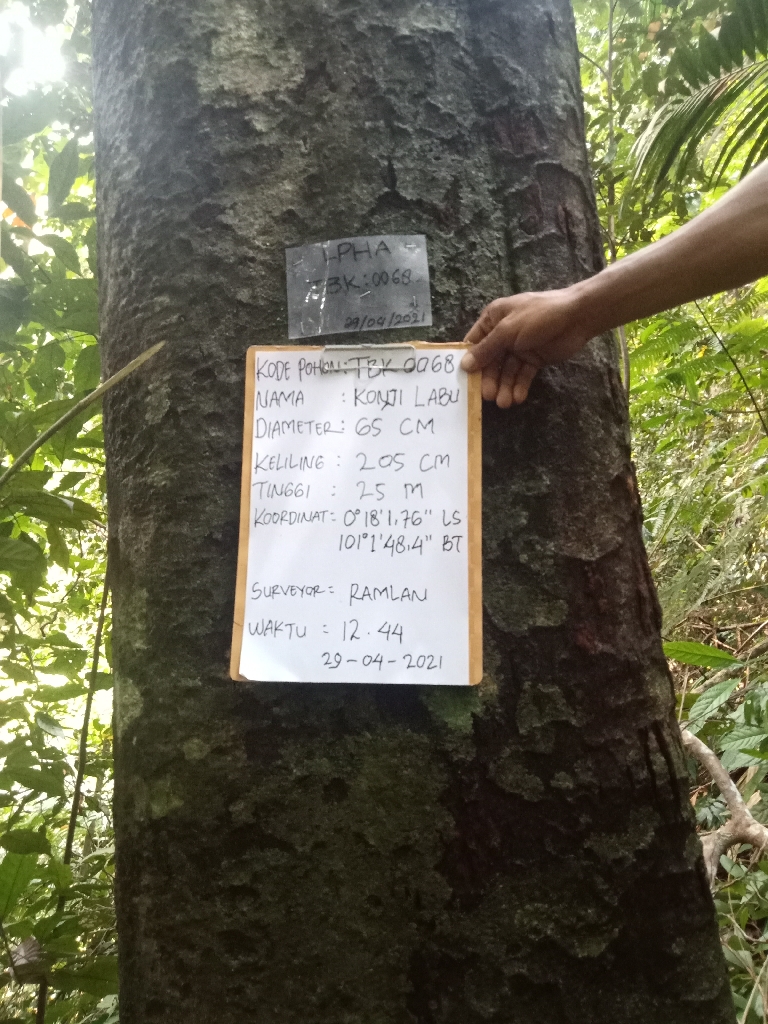 LPHA
TBK:0068
29/04/2021
KODE POHON: TBK 0068
NAMA : KONJI LABU
DIAMETER: 65 CM
KELILING : 205 CM
TINGGI : 25 M
KOORDINAT= 0°18'1,76" LS
101°1'48,4" BT
SURVEYOR= RAMLAN
WAKTU = 12.44
29-04-2021